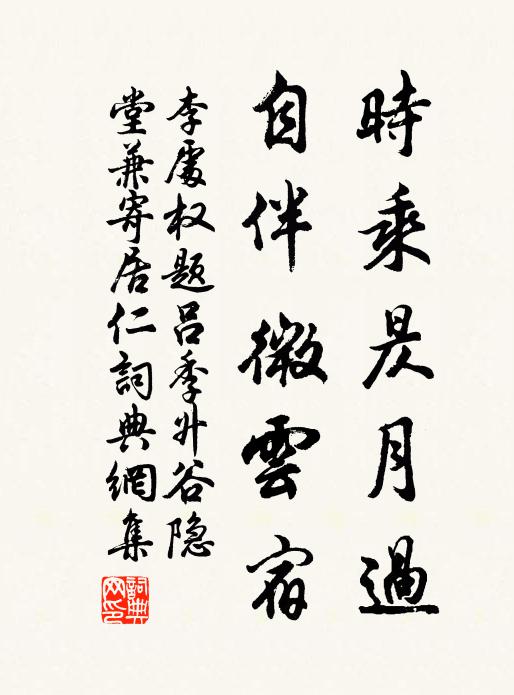 時乘昃月過
自伴微雲宿
李處权題吕季升谷隐
堂兼寄居仁詞典網集
詞典網印